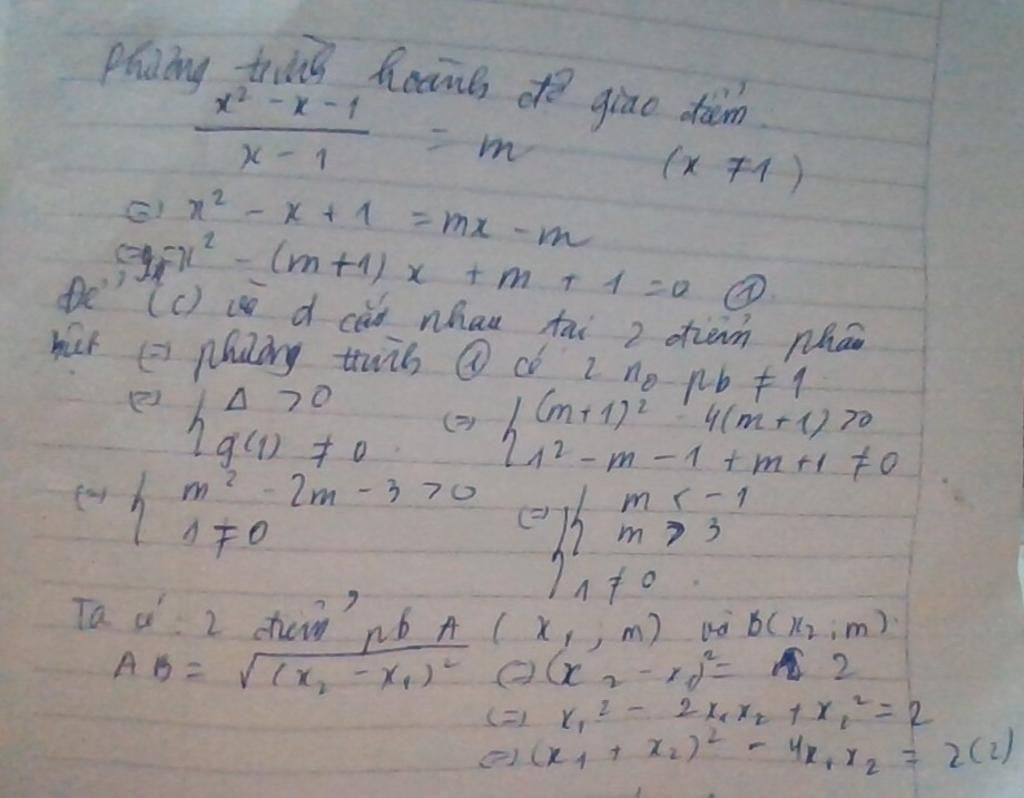 Phương trình hoành độ giao điểm
x² - x - 1 / x - 1 = m (x ≠ 1)
⇔ x² - x + 1 = mx - m
⇔ x² - (m+1)x + m + 1 = 0 ①
Để (C) và d cắt nhau tại 2 điểm phân
biệt ⇔ phương trình ① có 2 no pb ≠ 1
⇔ { Δ > 0 ⇔ { (m+1)² - 4(m+1) > 0
g(1) ≠ 0 1² - m - 1 + m + 1 ≠ 0
⇔ { m² - 2m - 3 > 0 ⇔ { { m < -1
1 ≠ 0 m > 3
1 ≠ 0
Ta có 2 điểm pb A (x₁, m) và B(x₂, m)
AB = √(x₂ - x₁)² ⇔ (x₂ - x₁)² = 2
⇔ x₁² - 2x₁x₂ + x₂² = 2
⇔ (x₁ + x₂)² - 4x₁x₂ = 2 (2)